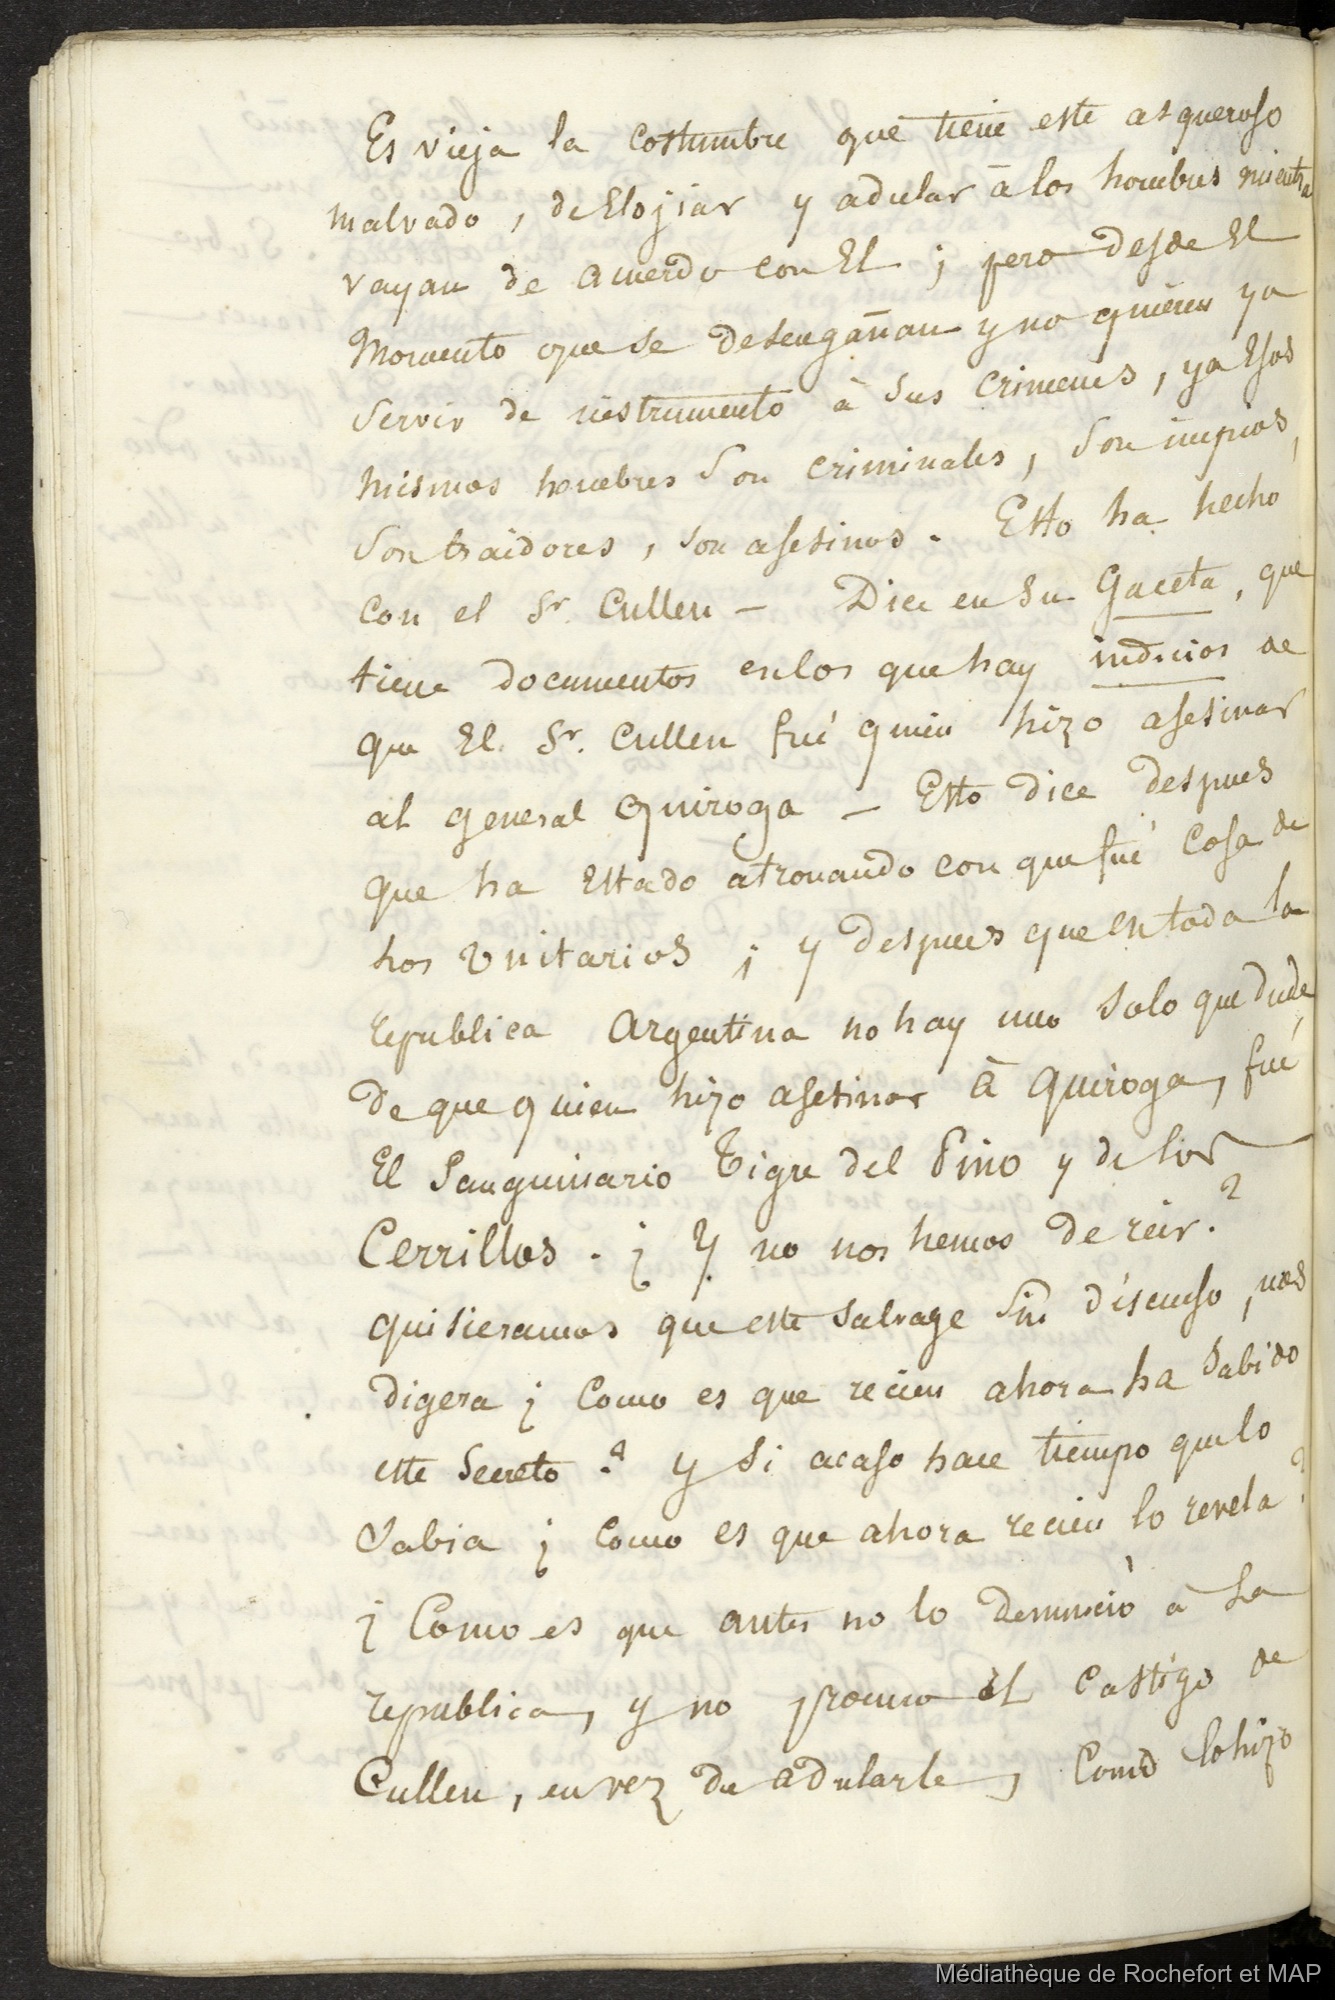 Es vieja la costumbre que tiene este asqueroso
malvado, de Elojiar y adular à los hombres mientras
vayan de acuerdo con El ; pero desde El
Momento que se desengañan y no quieren ya
Servir de instrumento à sus crimenes, ya Esos
mismos hombres son criminales, son impios,
son traidores, son asesinos. Esto ha hecho
con el Sr. Cullen — Dice en su Gaceta, que
tiene documentos en los que hay indicios de
que El Sr. Cullen fué quien hizo asesinar
al general Quiroga — Esto dice despues
que ha Estado atronando con que fué Cosa de
los Unitarios ; y despues que en toda la
republica Argentina no hay uno solo que dude
de que quien hizo asesinar à Quiroga, fué
El Sanguinario Tigre del Pino y de los
Cerrillos. ¿ Y no nos hemos de reir ?
quisieramos que este salvage sin disenso, nos
digera ¿ Como es que recien ahora ha sabido
este Secreto ? y si acaso hace tiempo que lo
Sabia ¿ Como es que ahora recien lo revela ?
¿ Como es que antes no lo denunció à la
republica, y no procuro el castigo de
Cullen, en vez de adularle, Como lo hizo
Médiathèque de Rochefort et MAP